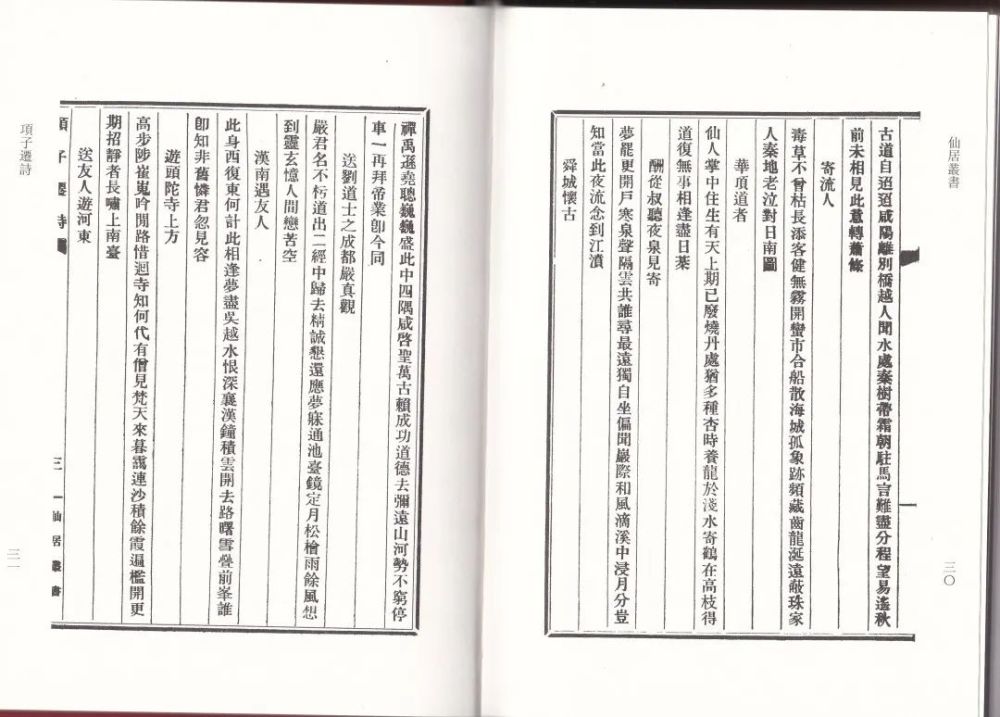 仙居叢書
古道自迢迢咸陽離別橋越人聞水處秦樹帶霜朝駐馬言難盡分程望易遙秋
前未相見此意轉蕭條
寄流人
毒草不曾枯長添客健無霧開蠻市合船散海城孤象跡頻藏齒龍涎遠蔽珠家
人秦地老泣對日南圖
華項道者
仙人掌中住生有天上期已廢燒丹處猶多種杏時養龍於淺水寄鶴在高枝得
道復無事相逢盡日棊
酬從叔聽夜泉見寄
夢罷更開戶寒泉聲隔雲共誰尋最遠獨自坐偏聞巖際和風滴溪中浸月分豈
知當此夜流念到江濆
舜城懷古
三〇
禪禹遜堯聰巍巍盛此中四隅咸啓聖萬古賴成功道德去彌遠山河勢不窮停
車一再拜帝業卽今同
送劉道士之成都嚴真觀
嚴君名不朽道出二經中歸去精誠懇還應夢寐通池臺鏡定月松檜雨餘風想
到靈玄憶人間戀苦空
漢南遇友人
此身西復東何計此相逢夢盡吳越水恨深襄漢鐘積雲開去路曙雪疊前峯誰
卽知非舊憐君忽見容
遊頭陀寺上方
高步陟崔嵬吟閒路惜迴寺知何代有僧見梵天來暮靄連沙積餘霞遍檻開更
期招靜者長嘯上南臺
送友人遊河東
項子遷詩
三
一
仙居叢書
項子遷詩
三一